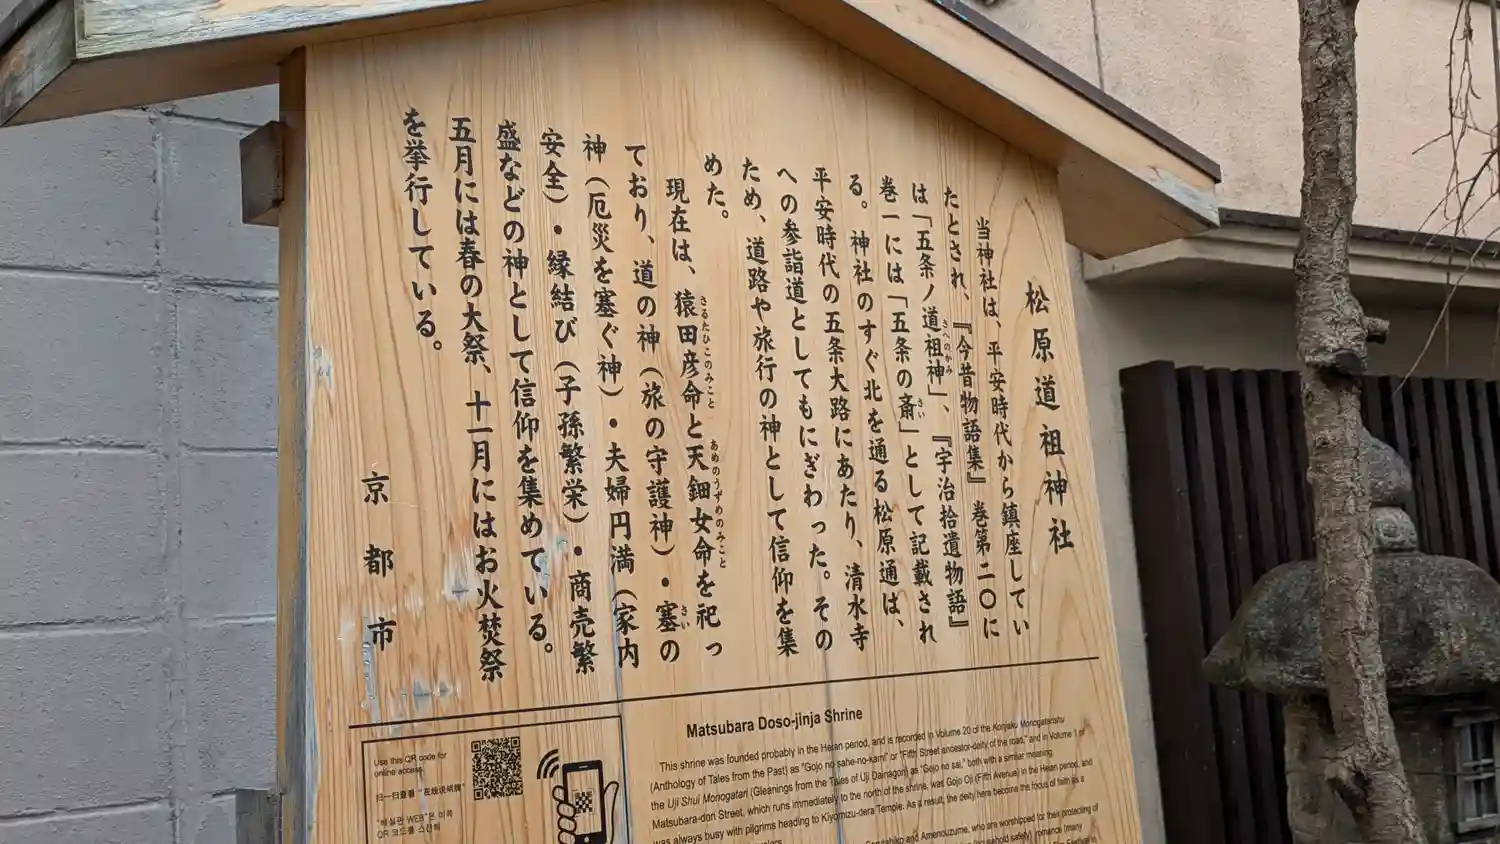 松原道祖神社
当神社は、平安時代から鎮座してい
たとされ、『今昔物語集』巻第二〇に
は「五条ノ道祖神」、『宇治拾遺物語』
さへのかみ
巻一には「五条の斎」として記載され
さい
る。神社のすぐ北を通る松原通は、
平安時代の五条大路にあたり、清水寺
への参詣道としてもにぎわった。その
ため、道路や旅行の神として信仰を集
めた。
現在は、猿田彦命と天鈿女命を祀っ
さるたひこのみこと
あめのうずめのみこと
ており、道の神(旅の守護神)・塞の
さい
神(厄災を塞ぐ神)・夫婦円満(家内
安全)・縁結び(子孫繁栄)・商売繁
盛などの神として信仰を集めている。
五月には春の大祭、十一月にはお火焚祭
を挙行している。
京都市
Matsubara Doso-jinja Shrine
This shrine was founded probably in the Heian period, and is recorded in Volume 20 of the Konjaku Monogatarishu
(Anthology of Tales from the Past) as "Gojo no sahe-no-kami" or "Fifth Street ancestor-deity of the road," and in Volume 1 of
the Uji Shui Monogatari (Gleanings from the Tales of Uji Dainagon) as "Gojo no sai," both with a similar meaning.
Matsubara-dori Street, which runs immediately to the north of the shrine, was Gojo Oji (Fifth Avenue) in the Heian period, and
was always busy with pilgrims heading to Kiyomizu-dera Temple. As a result, the deity here become the focus of faith as a
and Amenouzume, who are worshipped for their protecting of
household safety), romance (many
Use this QR code for
online access
扫一扫查看 "在线说明牌"
"해설판 WEB"은 이쪽
QR 코드를 스캔해